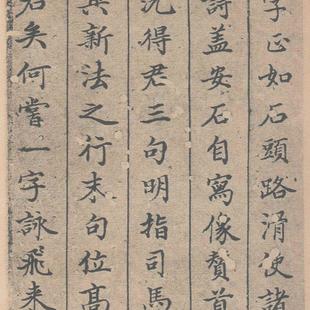 字正如石頭路滑使諸
詩蓋安石自寫像贊首
況得君三句明指司馬
其新法之行末句位高
若矣何嘗一字詠飛来